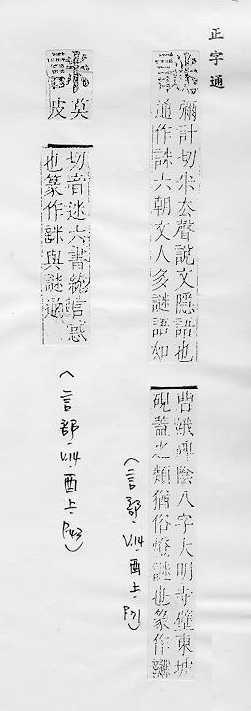 正字通
彌計切米去聲說文隱語也
通作詸六朝文人多謎語如
曹娥碑陰八字大明寺壁東坡
硯蓋之類猶俗燈謎也篆作
(言部.V.14.酉上.P.71)
莫
皮
切音迷六書統信惑
也篆作詸與謎通
(言部.V.14.酉上.P.43)